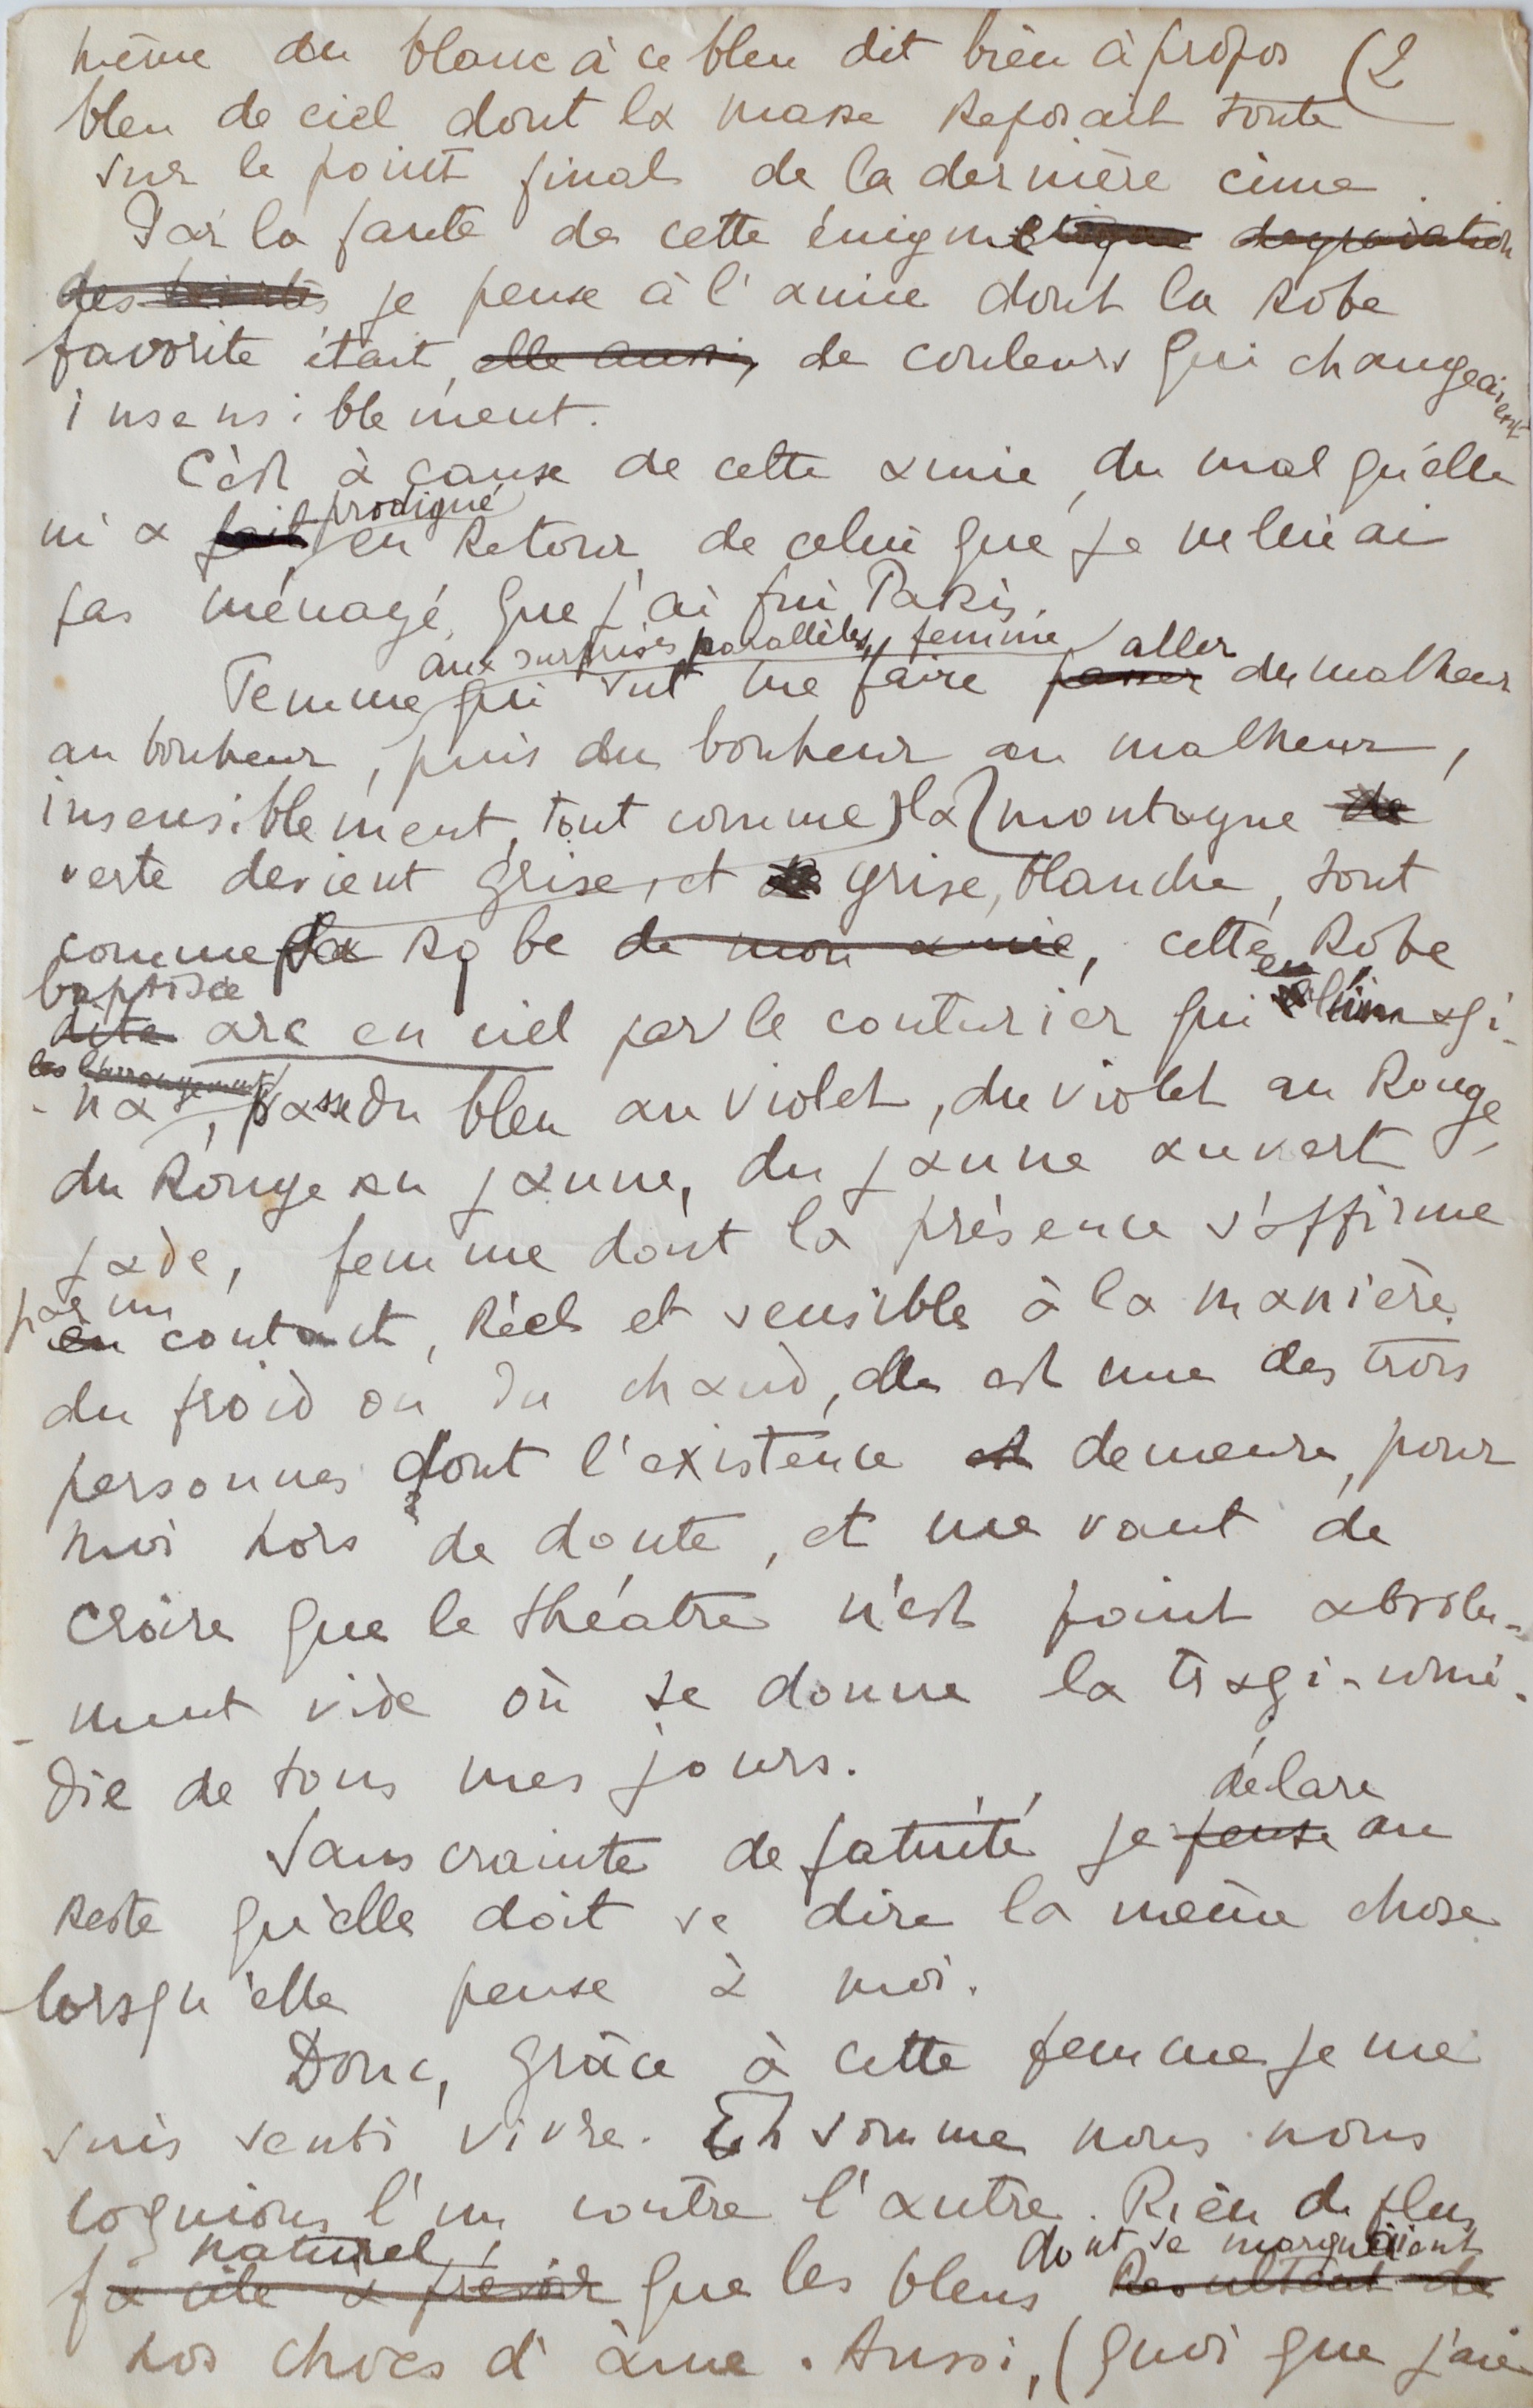 même du blanc à ce bleu dit bien à propos (2
bleu de ciel dont la masse reposait toute
sur le point final de la dernière cime.
Par la faute de cette énigmatique dégradation
des teintes je pense à l'amie dont la robe
favorite était, elle aussi, de couleurs qui changeaient
insensiblement.
C'est à cause de cette amie, du mal qu'elle
prodigué
m'a fait, en retour de celui que je ne lui ai
pas ménagé, que j'ai fui Paris.
aux surprises parallèles, femme aller
Femme qui sut me faire passer du malheur
au bonheur, puis du bonheur au malheur,
insensiblement, tout comme la montagne de
verte devient grise, et de grise, blanche, tout
comme la robe de mon amie, cette robe
baptisée en
dite arc en ciel par le couturier qui l'imagi-
les l'arrangement
-na, passe du bleu au violet, du violet au rouge,
du rouge au jaune, du jaune au vert
jade, femme dont la présence s'affirme
par un
en contact, réel et sensible à la manière
du froid ou du chaud, elle est une des trois
personnes dont l'existence est demeure, pour
moi hors de doute, et me vaut de
croire que le théâtre n'est point absolu-
-ment vide où se donne la tragi-comé-
die de tous mes jours.
déclare
Sans crainte de fatuité je pense au
reste qu'elle doit se dire la même chose
lorsqu'elle pense à moi.
Donc, grâce à cette femme je me
suis senti vivre. En somme nous nous
cognions l'un contre l'autre. Rien de plus
naturel, dont se marquaient
facile à prévoir que les bleus résultant de
nos chocs d'âme. Aussi, (quoi que j'aie